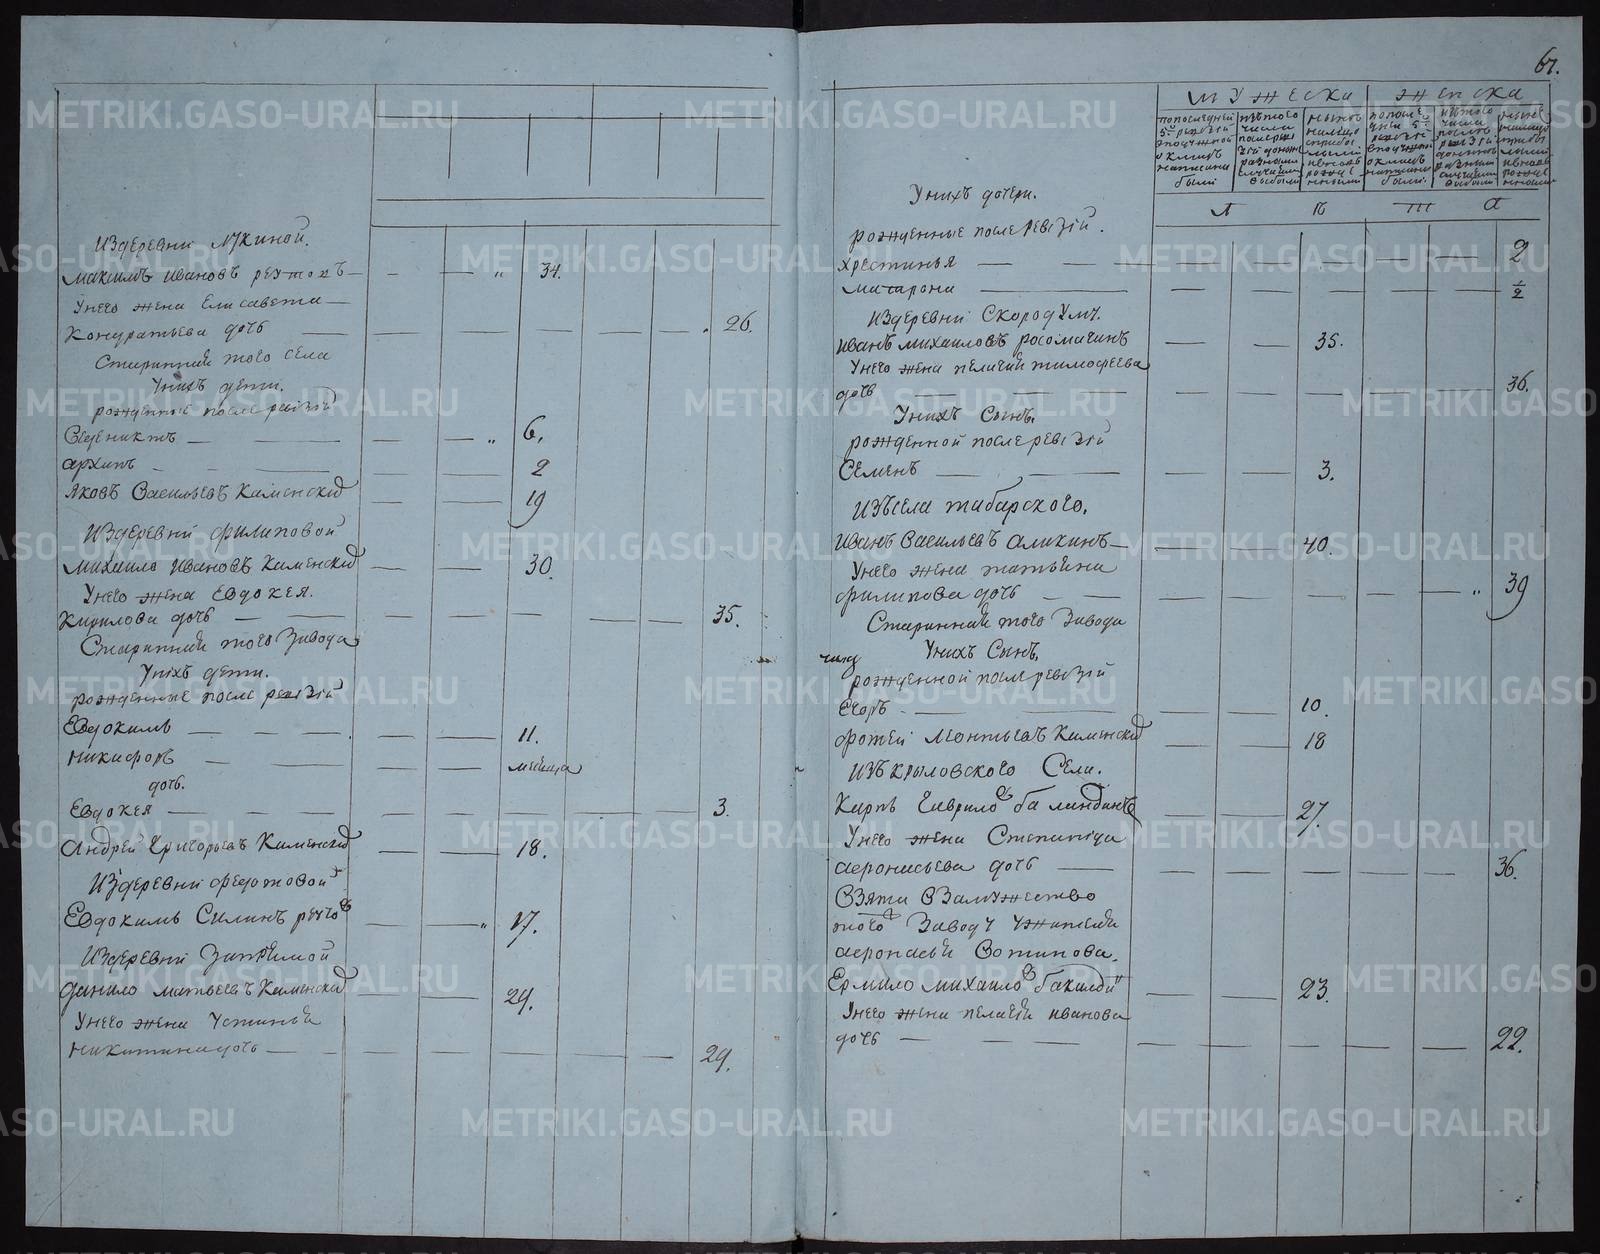 Издеревни Лукиной.
Максимъ Ивановъ реутовъ — 34.
Унего жена Елисавета
Кондратьева дочь — 26.
Стариннаи того села
Унихъ дети.
рожденные после ревизiи
Венениктъ — 6.
архипъ — 2
Яковъ Васильевъ Каменскiй — 19
Издеревни филиповой
михаило Ивановъ Каменскiй — 30.
Унего жена Евдокея.
Кирилова дочь — 35.
Стариннаи того Завода
Унихъ дети.
рожденные после ревизiи
Евдокимъ — 11.
никифоръ —
дочь.
Евдокея — 3.
Андрей Григорьевъ Каменскiй — 18.
Издеревни федотовой
Евдокимъ Силинъ — 17.
Издеревни
данило матвеевъ Каменскiй — 29.
Унего жена Устинья
никитина дочь — 29.
67.
мужеска женска
попоследней 5й ревизiи вподушной окладъ написано были
изътого числа после ревизiи разными случаями выбыли
Л Ѣ Т А
Унихъ дочери.
рожденные после ревизiи.
хрестинья — 2
матрона — 1/2
Издеревни Скородумъ.
Иванъ михаиловъ росомагинъ — 35.
Унего жена пелагеи тимофеева
дочь — 36.
Унихъ Сынъ.
рожденной после ревизiи
Семенъ — 3.
изъсела табарского.
Иванъ Васильевъ аликинъ — 40.
Унего жена татьяна
филипова дочь — 39
Стариннаи того Завода
Унихъ Сынъ.
рожденной после ревизiи
Егоръ — 10.
фотей Леонтьевъ Каменскiй — 18
изъ крыловского Села.
Карпъ Гаврилов баландинъ — 27.
Унего жена Степанида
аеронасьева дочь — 36.
Взята Взамужество
того Заводу
аеронасьи Вотинова.
Ермило михаилов — 23.
Унего жена пелагеи иванова
дочь — 22.
METRIKI.GASO-URAL.RU